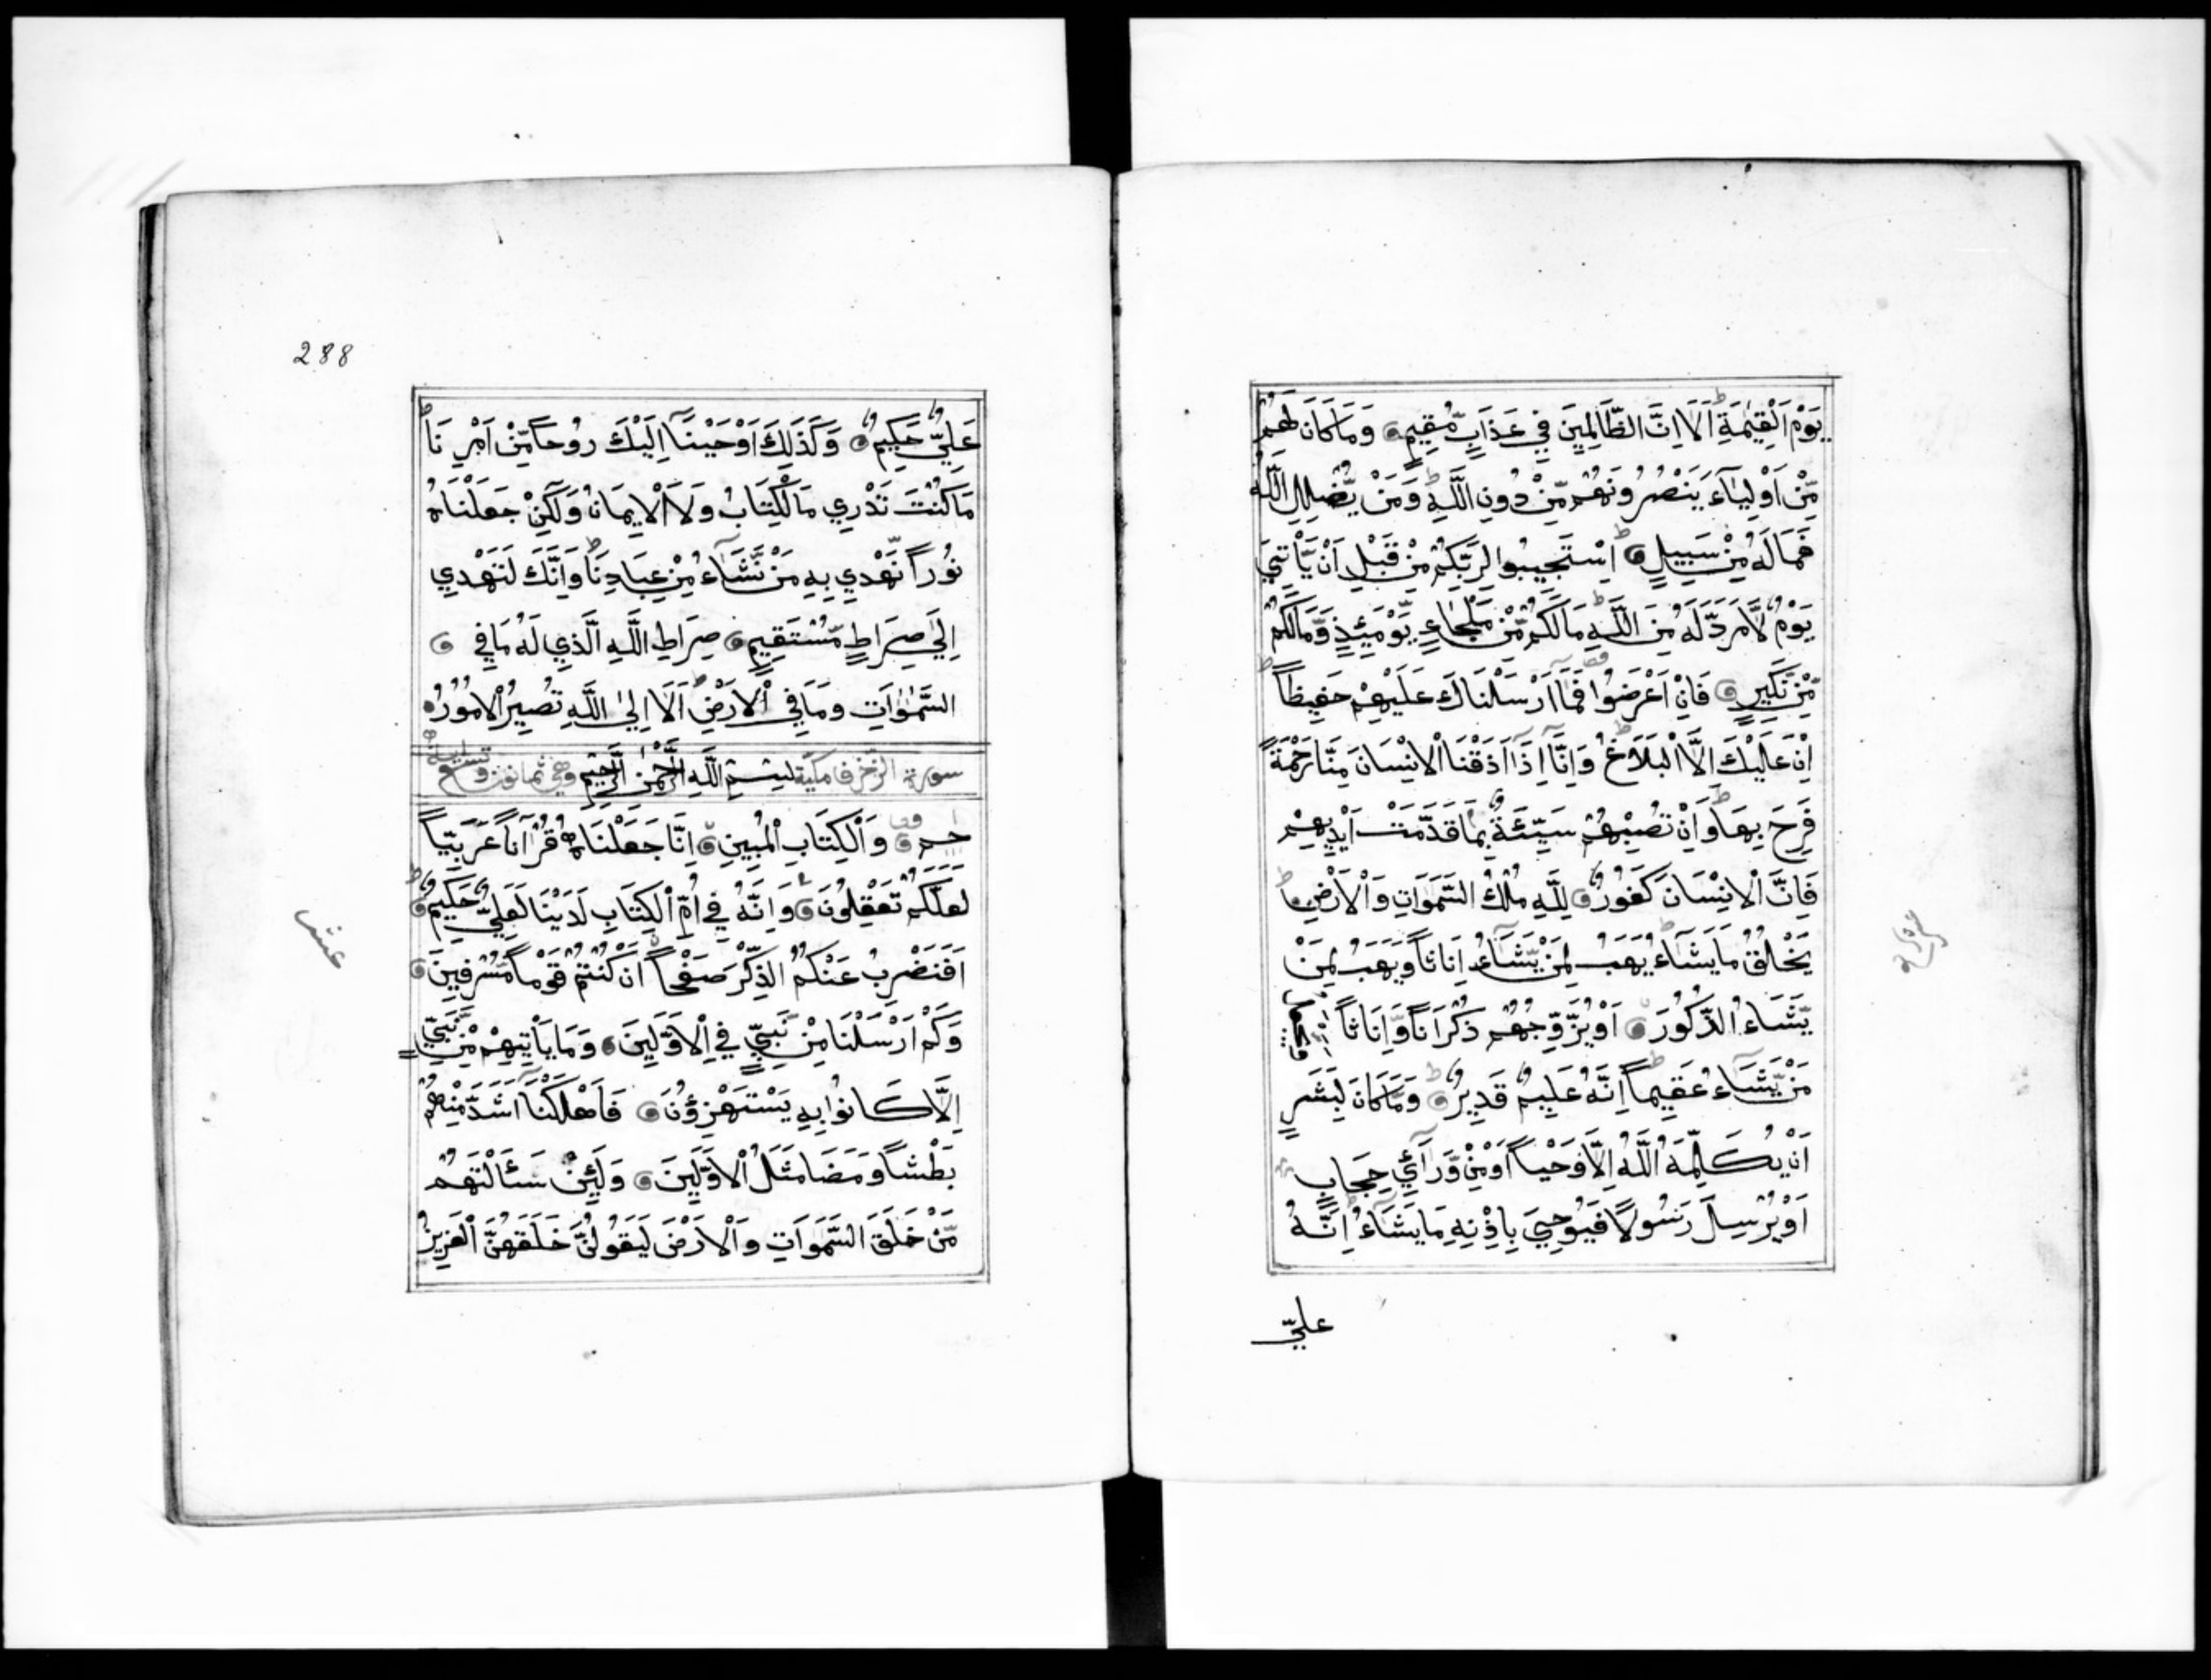 يَوْمَ الْقِيٰمَةِ اَلَا اِنَّ الظَّالِمِينَ فِي عَذَابٍ مُّقِيمٍ وَمَا كَانَ لَهُمْ
مِّنْ اَوْلِيَآءَ يَنْصُرُونَهُمْ مِّنْ دُونِ اللَّهِ وَمَنْ يُّضْلِلِ اللَّهُ
فَمَا لَهُ مِنْ سَبِيلٍ اِسْتَجِيبُوا لِرَبِّكُمْ مِّنْ قَبْلِ اَنْ يَّأْتِيَ
يَوْمٌ لَّا مَرَدَّ لَهُ مِنَ اللَّهِ مَا لَكُمْ مِّنْ مَلْجَاءٍ يَّوْمَئِذٍ وَّمَا لَكُمْ
مِّنْ نَّكِيرٍ فَاِنْ اَعْرَضُوا فَمَآ اَرْسَلْنَاكَ عَلَيْهِمْ حَفِيظًا
اِنْ عَلَيْكَ اِلَّا الْبَلَاغُ وَاِنَّآ اِذَآ اَذَقْنَا الْاِنْسَانَ مِنَّا رَحْمَةً
فَرِحَ بِهَا وَاِنْ تُصِبْهُمْ سَيِّئَةٌ بِمَا قَدَّمَتْ اَيْدِيهِمْ
فَاِنَّ الْاِنْسَانَ كَفُورٌ لِلَّهِ مُلْكُ السَّمَوَاتِ وَالْاَرْضِ
يَخْلُقُ مَا يَشَآءُ يَهَبُ لِمَنْ يَّشَآءُ اِنَاثًا وَيَهَبُ لِمَنْ
يَّشَاءُ الذُّكُورَ اَوْ يُزَوِّجُهُمْ ذُكْرَانًا وَّاِنَاثًا
مَنْ يَّشَآءُ عَقِيمًا اِنَّهُ عَلِيمٌ قَدِيرٌ وَمَا كَانَ لِبَشَرٍ
اَنْ يُكَلِّمَهُ اللَّهُ اِلَّا وَحْيًا اَوْ مِنْ وَّرَآئِ حِجَابٍ
اَوْ يُرْسِلَ رَسُولًا فَيُوحِيَ بِاِذْنِهِ مَا يَشَآءُ اِنَّهُ
عليّ
288
عَلِيٌّ حَكِيمٌ وَكَذَلِكَ اَوْحَيْنَآ اِلَيْكَ رُوحًا مِّنْ اَمْرِنَا
مَا كُنْتَ تَدْرِي مَا الْكِتَابُ وَلَا الْاِيمَانُ وَلَكِنْ جَعَلْنَاهُ
نُورًا نَّهْدِي بِهِ مَنْ نَّشَآءُ مِنْ عِبَادِنَا وَاِنَّكَ لَتَهْدِي
اِلٰي صِرَاطٍ مُّسْتَقِيمٍ صِرَاطِ اللَّهِ الَّذِي لَهُ مَا فِي
السَّمٰوَاتِ وَمَا فِي الْاَرْضِ اَلَا اِلَي اللَّهِ تَصِيرُ الْاُمُورُ
سورة الزخرف مكية بِسْمِ اللَّهِ الرَّحْمٰنِ الرَّحِيمِ وهي ثمانون وتسع
حٰم وَالْكِتَابِ الْمُبِينِ اِنَّا جَعَلْنَاهُ قُرْآنًا عَرَبِيًّا
لَعَلَّكُمْ تَعْقِلُونَ وَاِنَّهُ فِي اُمِّ الْكِتَابِ لَدَيْنَا لَعَلِيٌّ حَكِيمٌ
عشر
اَفَنَضْرِبُ عَنْكُمُ الذِّكْرَ صَفْحًا اَنْ كُنْتُمْ قَوْمًا مُّسْرِفِينَ
وَكَمْ اَرْسَلْنَا مِنْ نَّبِيٍّ فِي الْاَوَّلِينَ وَمَا يَأْتِيهِمْ مِّنْ نَّبِيٍّ
اِلَّا كَانُوا بِهِ يَسْتَهْزِؤُنَ فَاَهْلَكْنَآ اَشَدَّ مِنْهُمْ
بَطْشًا وَمَضَا مَثَلُ الْاَوَّلِينَ وَلَئِنْ سَئَالْتَهُمْ
مَّنْ خَلَقَ السَّمَوَاتِ وَالْاَرْضَ لَيَقُولُنَّ خَلَقَهُنَّ الْعَزِيزُ